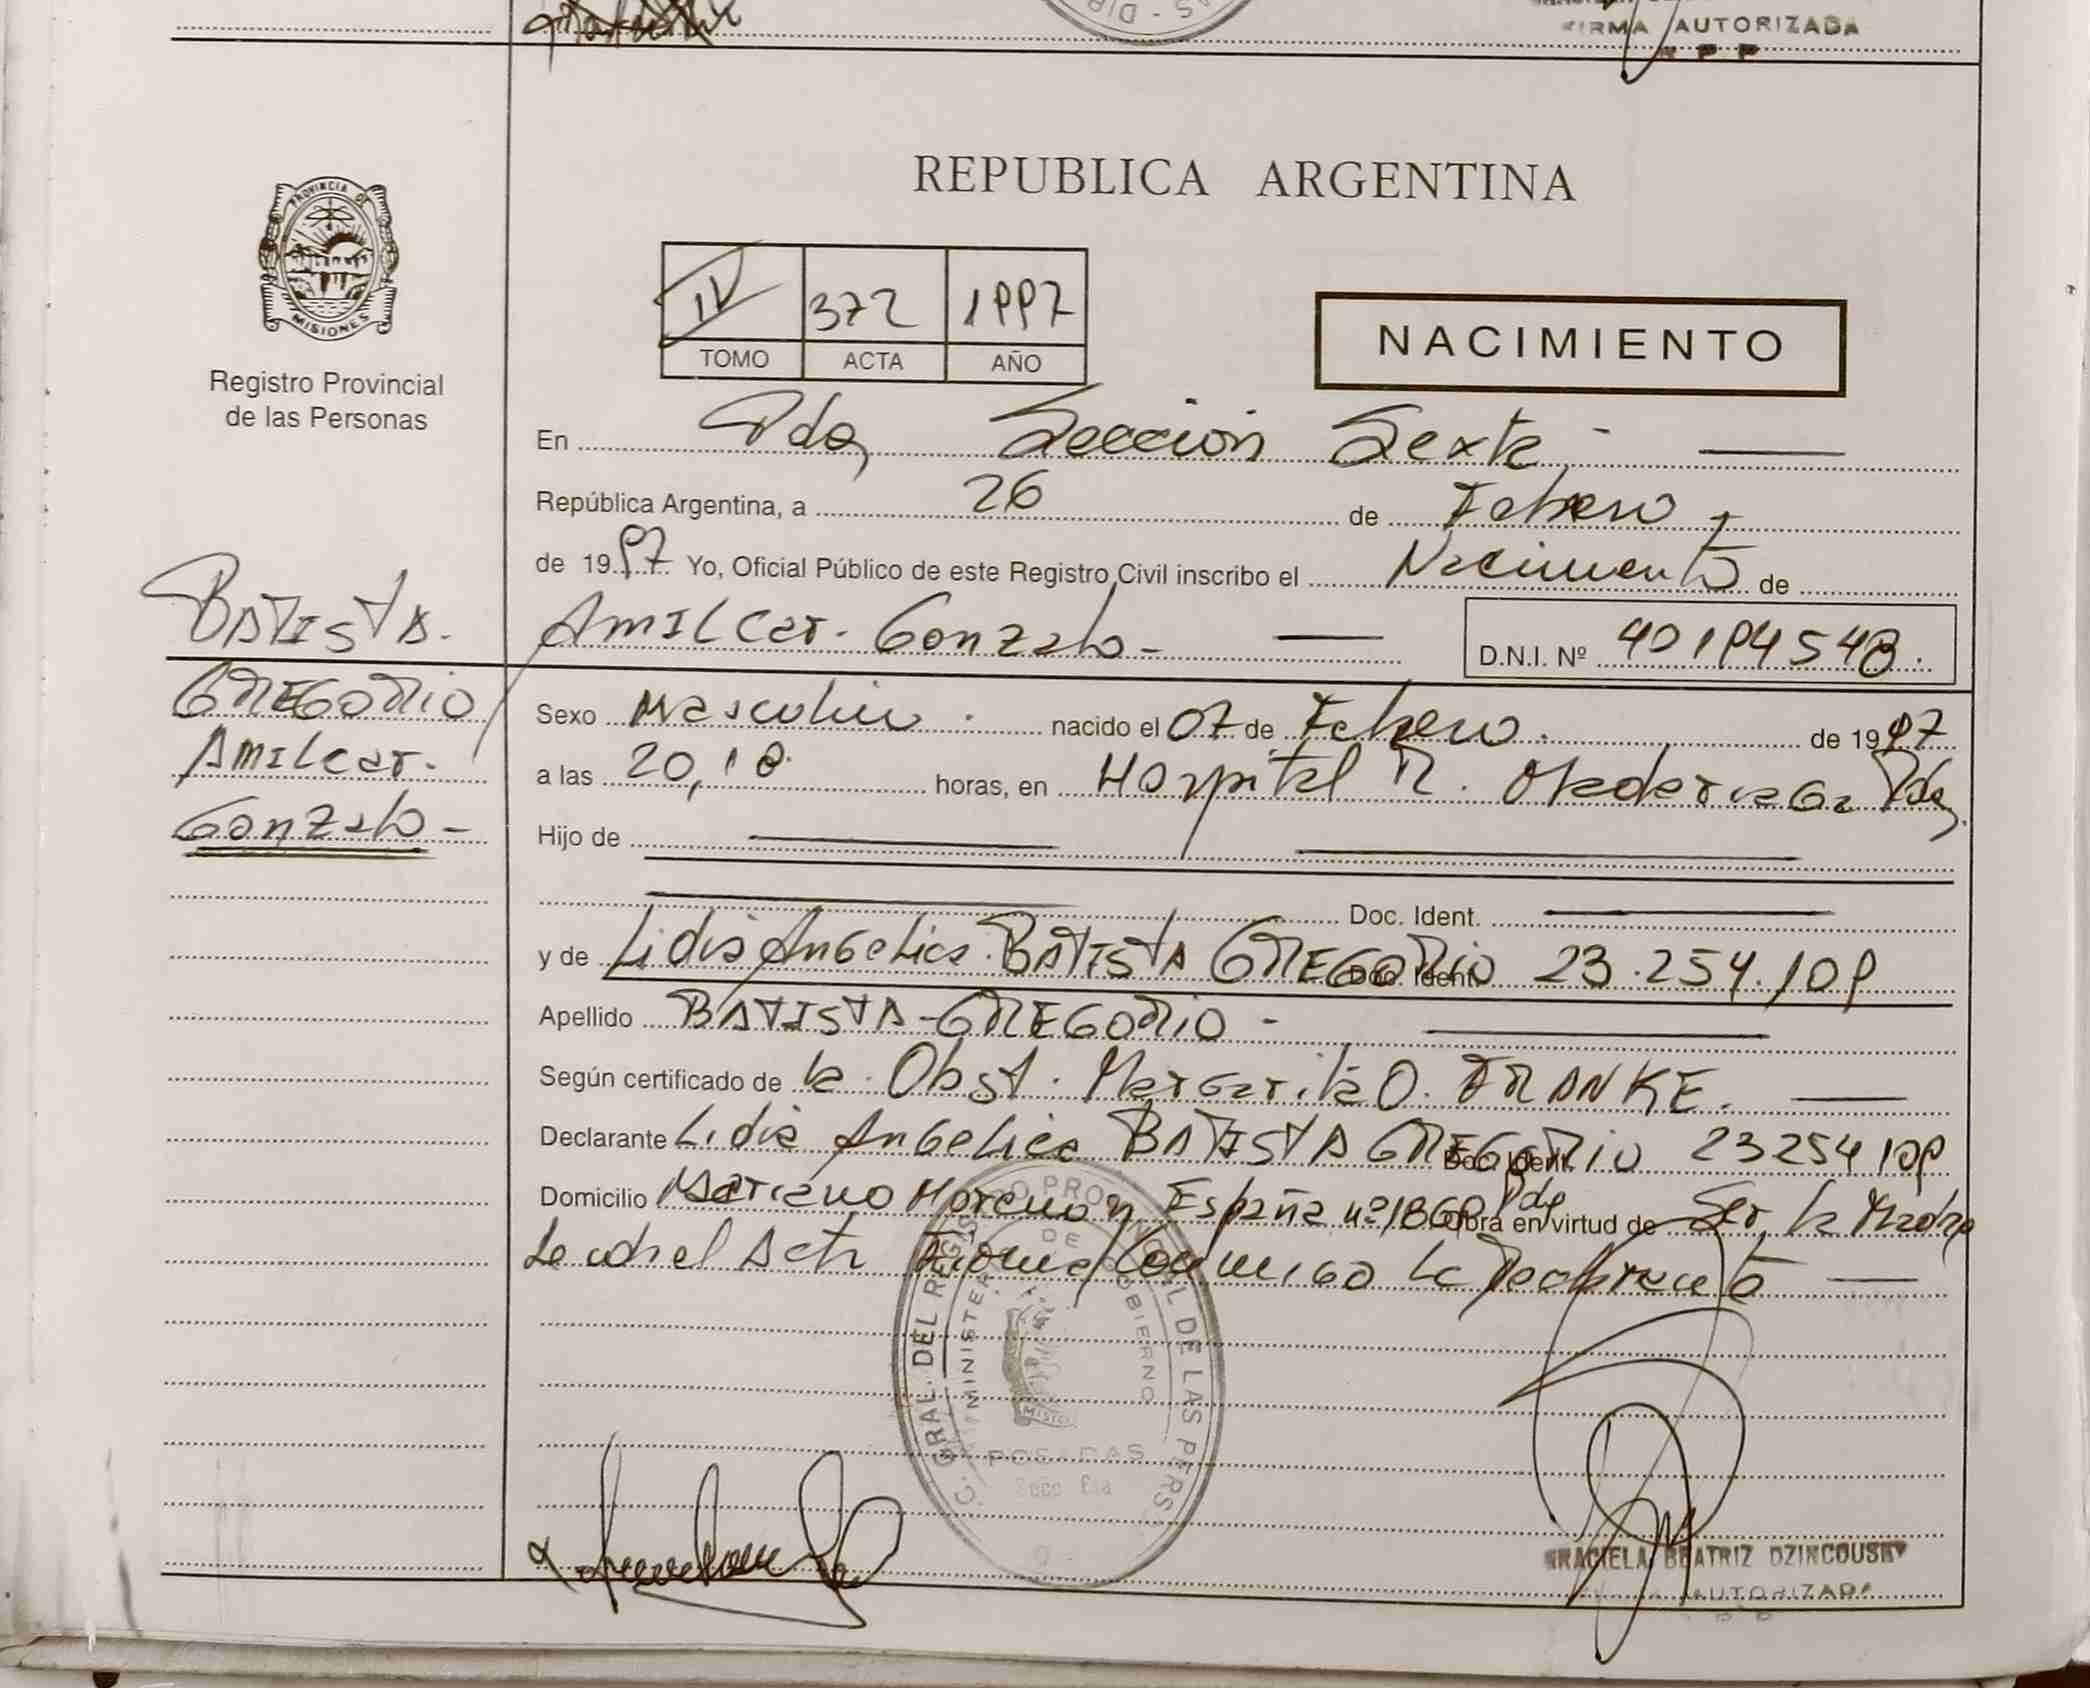 FIRMA AUTORIZADA
R P P
PROVINCIA DE
MISIONES
Registro Provincial
de las Personas
REPUBLICA ARGENTINA
IV 372 1997
TOMO ACTA AÑO
NACIMIENTO
En Pdas Sección Sexta.-
República Argentina, a 26 de Febrero
de 1997 Yo, Oficial Público de este Registro Civil inscribo el Nacimiento de
Amilcar Gonzalo - D.N.I. Nº 40194548.
BATISTA
GREGORIO
Amilcar
Gonzalo -
Sexo Masculino. nacido el 07 de Febrero. de 1997
a las 20,18 horas, en Hospital R. Madariaga Pdas.
Hijo de
Doc. Ident.
y de Lidia Angelica BATISTA GREGORIO Doc. Ident. 23.254.109
Apellido BATISTA-GREGORIO -
Según certificado de la Obst. Margarita O. FRANKE.
Declarante Lidia Angelica BATISTA GREGORIO Doc. Ident. 23254109
Domicilio Mariano Moreno y España nº 1869 Pdas Obra en virtud de Ser la Madre
Leida el Acta Firma Conmigo la Declarante
C. GRAL. DEL REGISTRO PROVINCIAL DE LAS PERSO
MINISTERIO DE GOBIERNO
MISIO
POSADAS
Secc 6ta
GRACIELA BEATRIZ DZINCOUSKY
AUTORIZADA